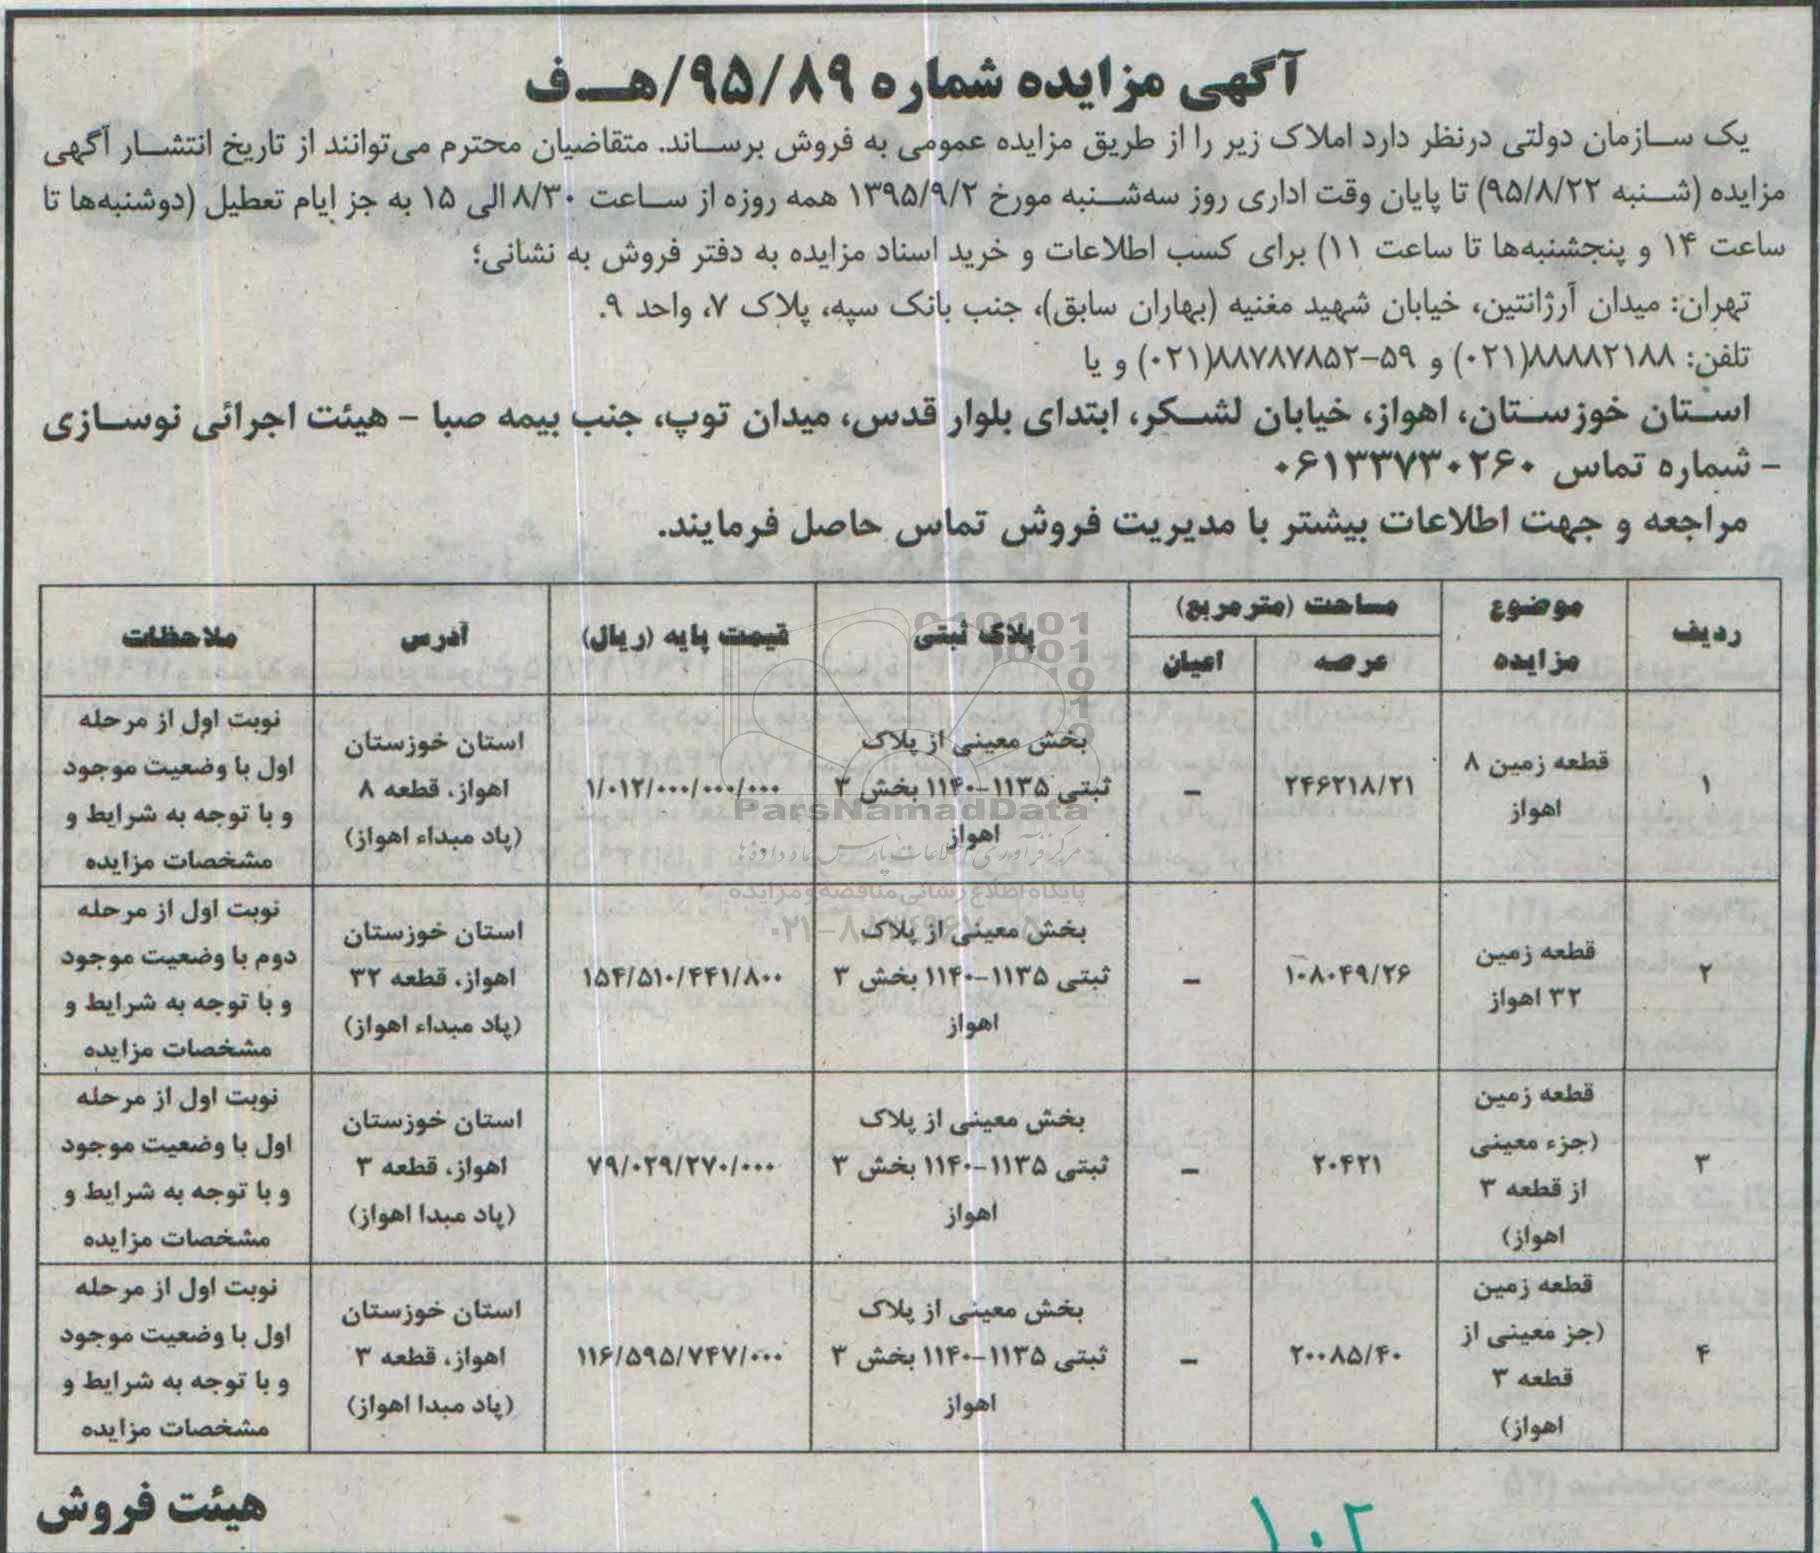 آگهی مزایده شماره ۹۵/۸۹/هـف
یک سازمان دولتی درنظر دارد املاک زیر را از طریق مزایده عمومی به فروش برساند. متقاضیان محترم می‌توانند از تاریخ انتشار آگهی
مزایده (شنبه ۹۵/۸/۲۲) تا پایان وقت اداری روز سه‌شنبه مورخ ۱۳۹۵/۹/۲ همه روزه از ساعت ۸/۳۰ الی ۱۵ به جز ایام تعطیل (دوشنبه‌ها تا
ساعت ۱۴ و پنجشنبه‌ها تا ساعت ۱۱) برای کسب اطلاعات و خرید اسناد مزایده به دفتر فروش به نشانی؛
تهران: میدان آرژانتین، خیابان شهید مغنیه (بهاران سابق)، جنب بانک سپه، پلاک ۷، واحد ۹.
تلفن: ۸۸۸۸۲۱۸۸(۰۲۱) و ۵۹-۸۸۷۸۷۸۵۲(۰۲۱) و یا
استان خوزستان، اهواز، خیابان لشکر، ابتدای بلوار قدس، میدان توپ، جنب بیمه صبا - هیئت اجرائی نوسازی
- شماره تماس ۰۶۱۳۳۷۳۰۲۶۰
مراجعه و جهت اطلاعات بیشتر با مدیریت فروش تماس حاصل فرمایند.
ردیف
موضوع
مزایده
مساحت (مترمربع)
عرصه
اعیان
پلاک ثبتی
قیمت پایه (ریال)
آدرس
ملاحظات
۱
قطعه زمین ۸
اهواز
۲۴۶۲۱۸/۲۱
-
بخش معینی از پلاک
ثبتی ۱۱۳۵-۱۱۴۰ بخش ۳
اهواز
۱/۰۱۲/۰۰۰/۰۰۰/۰۰۰
استان خوزستان
اهواز، قطعه ۸
(پاد مبداء اهواز)
نوبت اول از مرحله
اول با وضعیت موجود
و با توجه به شرایط و
مشخصات مزایده
۲
قطعه زمین
۳۲ اهواز
۱۰۸۰۴۹/۲۶
-
بخش معینی از پلاک
ثبتی ۱۱۳۵-۱۱۴۰ بخش ۳
اهواز
۱۵۴/۵۱۰/۴۴۱/۸۰۰
استان خوزستان
اهواز، قطعه ۳۲
(پاد مبداء اهواز)
نوبت اول از مرحله
دوم با وضعیت موجود
و با توجه به شرایط و
مشخصات مزایده
۳
قطعه زمین
(جزء معینی
از قطعه ۳
اهواز)
۲۰۴۲۱
-
بخش معینی از پلاک
ثبتی ۱۱۳۵-۱۱۴۰ بخش ۳
اهواز
۷۹/۰۲۹/۲۷۰/۰۰۰
استان خوزستان
اهواز، قطعه ۳
(پاد مبدا اهواز)
نوبت اول از مرحله
اول با وضعیت موجود
و با توجه به شرایط و
مشخصات مزایده
۴
قطعه زمین
(جز معینی از
قطعه ۳
اهواز)
۲۰۰۸۵/۴۰
-
بخش معینی از پلاک
ثبتی ۱۱۳۵-۱۱۴۰ بخش ۳
اهواز
۱۱۶/۵۹۵/۷۴۷/۰۰۰
استان خوزستان
اهواز، قطعه ۳
(پاد مبدا اهواز)
نوبت اول از مرحله
اول با وضعیت موجود
و با توجه به شرایط و
مشخصات مزایده
ParsNamadData
پایگاه اطلاع رسانی مناقصه و مزایده
هیئت فروش
۱۰۲